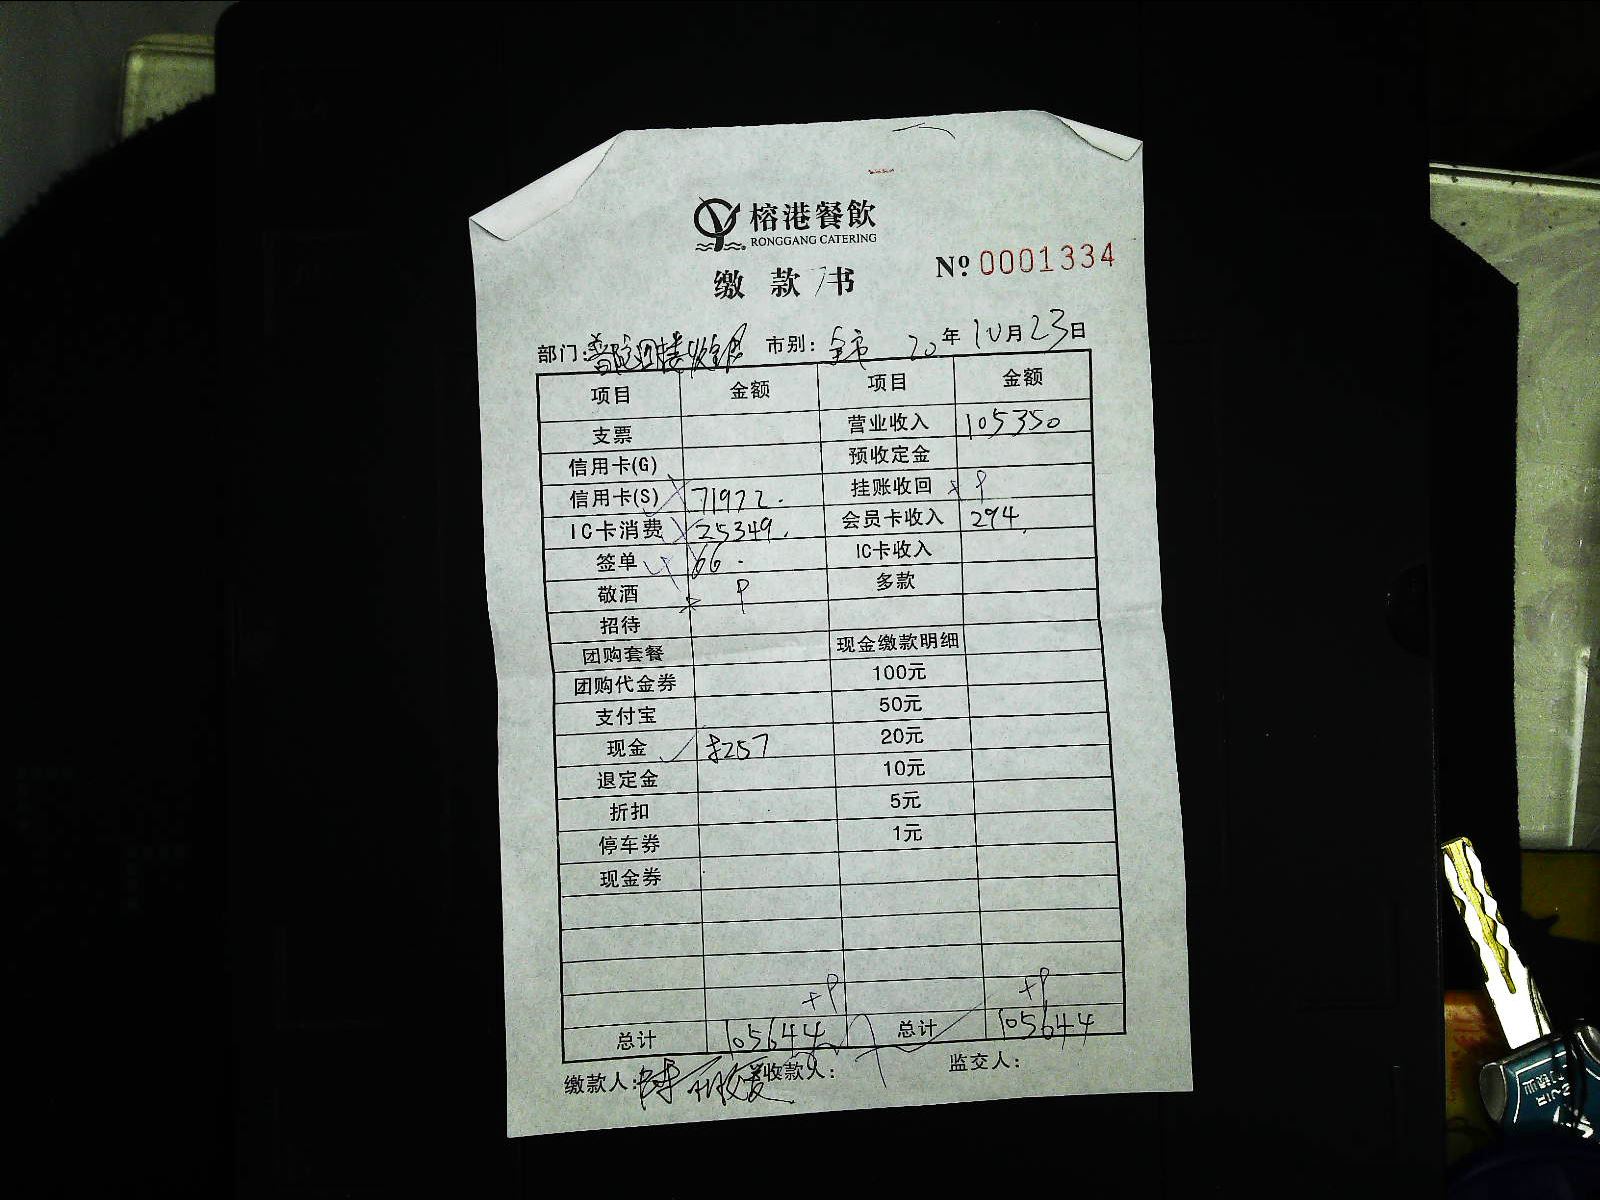 榕港餐飲
RONGGANG CATERING
缴款书 № 0001334
部门: 市别: 全市 20年10月23日
项目 金额 项目 金额
支票 营业收入 105350
信用卡(G) 预收定金
信用卡(S) 71972. 挂账收回 + 9
IC卡消费 25349. 会员卡收入 294.
签单 66. IC卡收入
敬酒 9 多款
招待
团购套餐 现金缴款明细
团购代金券 100元
支付宝 50元
现金 8257 20元
退定金 10元
折扣 5元
停车券 1元
现金券
+9 +9
总计 105644 总计 105644
缴款人: 收款人: 监交人: